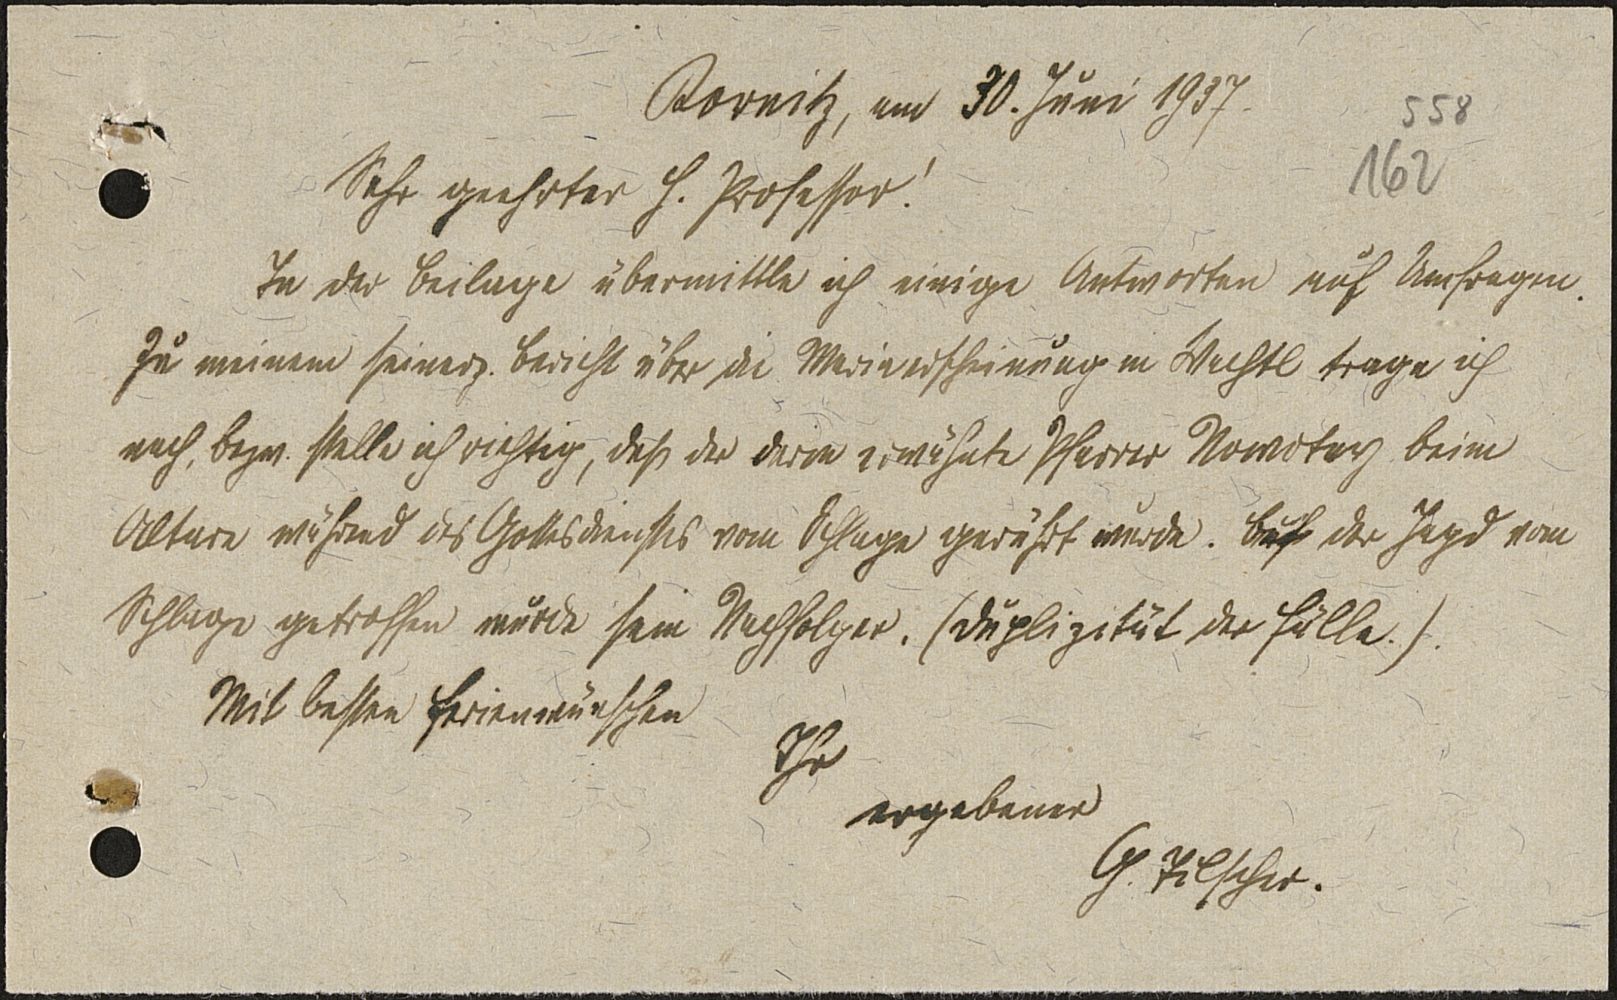 Kornitz, am 30. Juni 1937.
558
162
Sehr geehrter H. Professor!
In der Beilage übermittle ich einige Antworten auf Umfragen.
Zu meinem seinerz. Bericht über die Marienerscheinung in Wachtl trage ich
nach, bezw. stelle ich richtig, daß der darin erwähnte Pfarrer Nowotny beim
Altare während des Gottesdienstes vom Schlage gerührt wurde. Auf der Jagd vom
Schlage getroffen wurde sein Nachfolger. (Duplizität der Fälle.).
Mit besten Ferienwünschen
Ihr
ergebener
G. Tilscher.